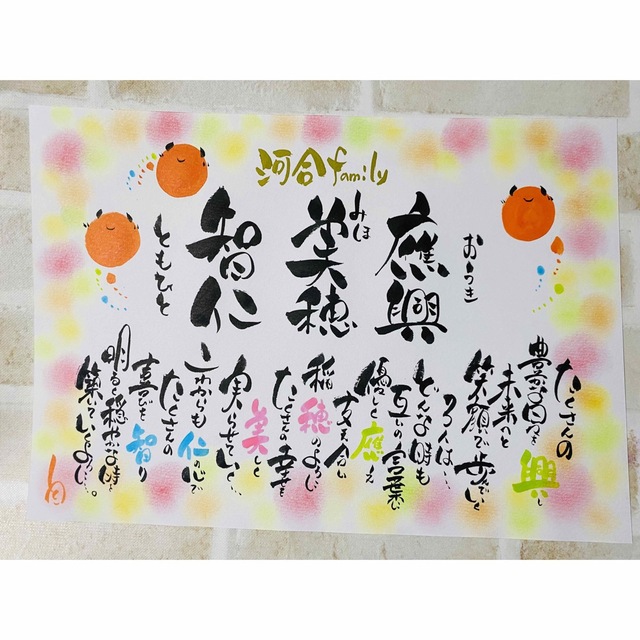 河合family
應興
おうき
美穂
みほ
智仁
ともひと
たくさんの
豊かな日々を興し
未来へと
笑顔で歩んでいく
3人は…
どんな時も
互いの言葉に
優しく應え
支え合い
稲穂のように
たくさんの幸を
美しく
実らせていく…
これからも仁の心で
たくさんの
喜びを智り
明るく穏やかな時を
築いていくように…。